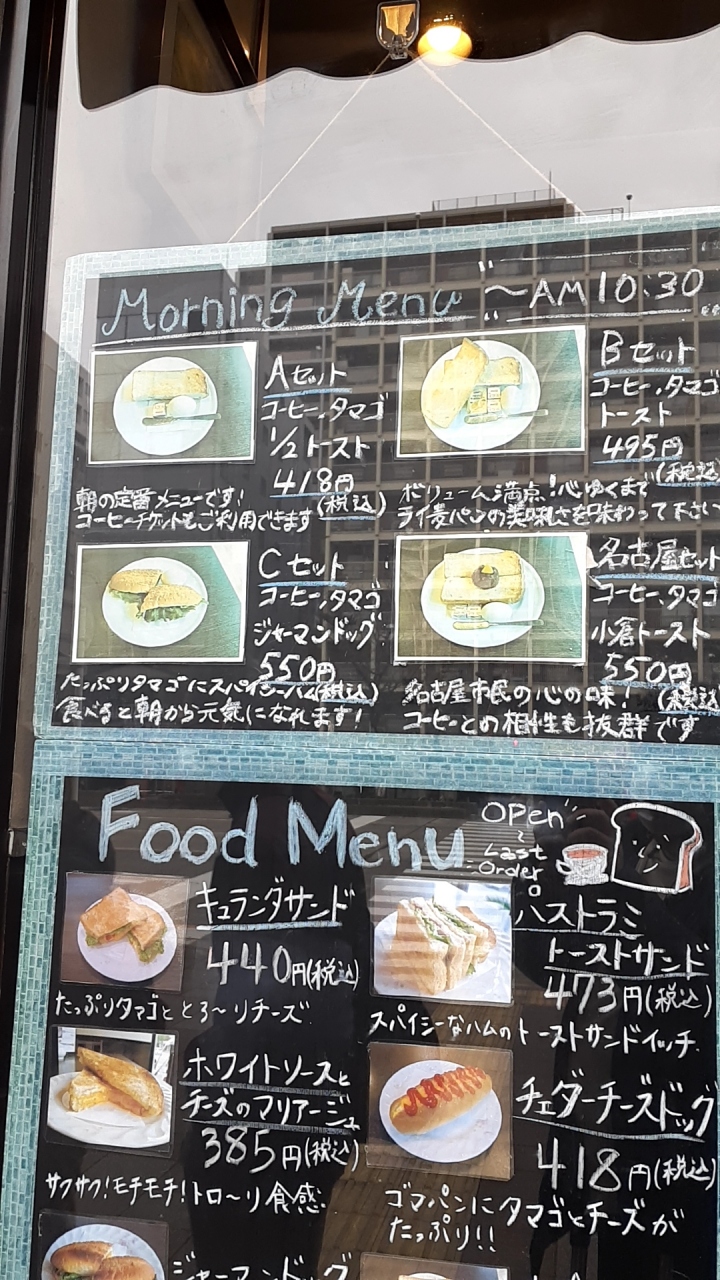 Morning Menu "～AM10:30
Aセット
コーヒー,タマゴ
1/2トースト
418円
(税込)
朝の定番メニューです!
コーヒーチケットもご利用できます
Bセット
コーヒー,タマゴ
トースト
495円
(税込)
ボリューム満点!心ゆくまで
ライ麦パンの美味しさを味わって下さい
Cセット
コーヒー,タマゴ
ジャーマンドッグ
550円
(税込)
たっぷりタマゴにスパイシーハム
食べると朝から元気になれます!
名古屋セット
コーヒー,タマゴ
小倉トースト
550円
(税込)
名古屋市民の心の味!
コーヒーとの相性も抜群です
Food Menu
OPen
～
Last
Order
キュランダサンド
440円(税込)
たっぷりタマゴととろ～りチーズ
パストラミ
トーストサンド
473円(税込)
スパイシーなハムのトーストサンドイッチ.
ホワイトソースと
チーズのマリアージュ
385円(税込)
サクサク!モチモチ!トロ～リ食感
チェダーチーズドッグ
418円(税込)
ゴマパンにタマゴとチーズが
たっぷり!!
ジャーマンドッグ